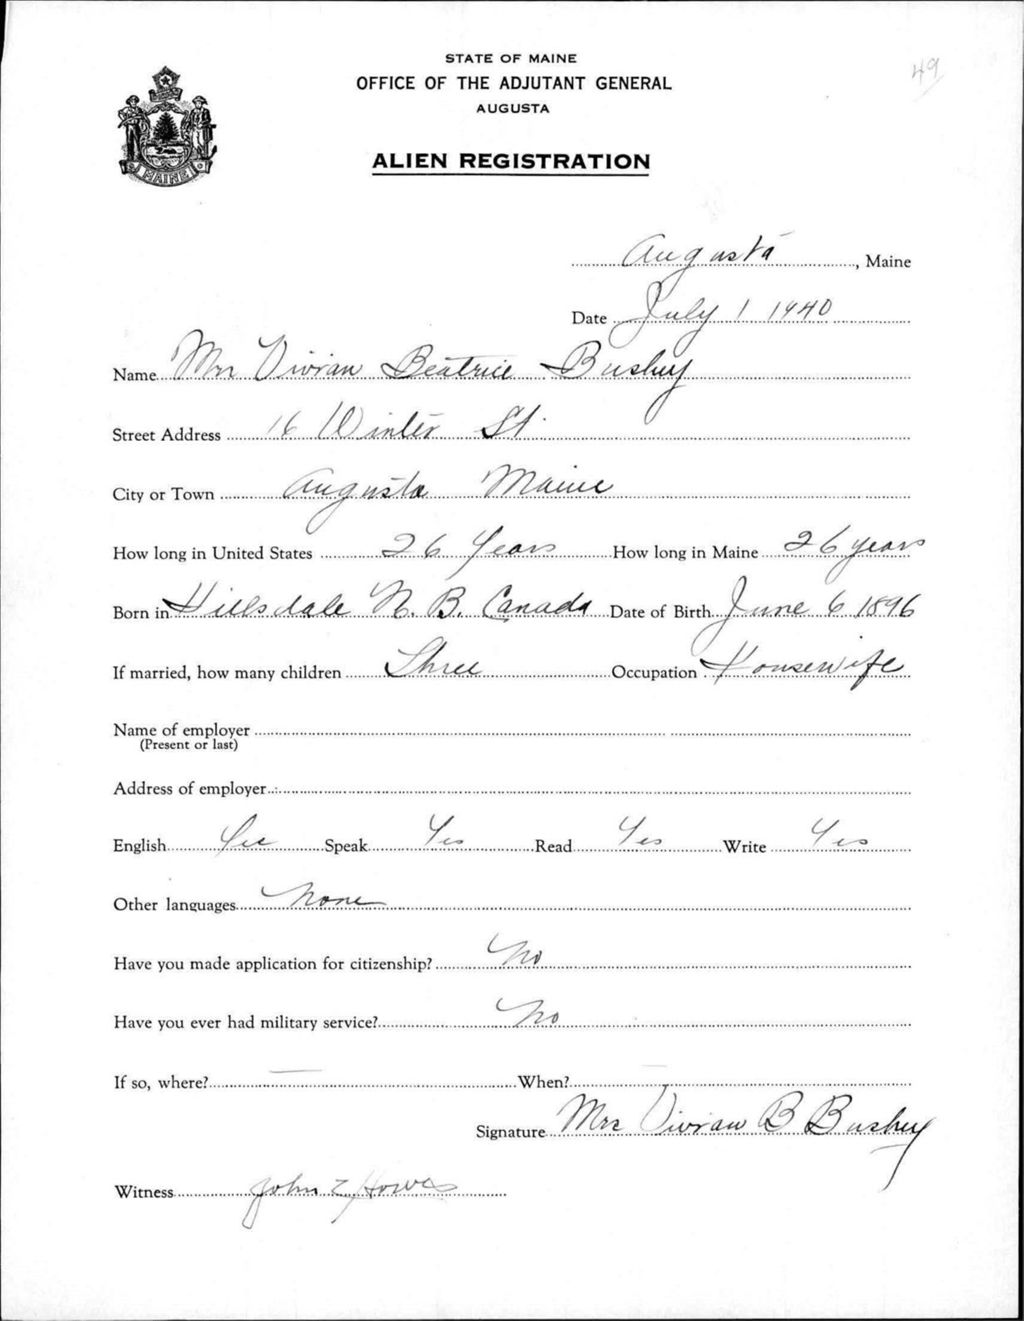 STATE OF MAINE
OFFICE OF THE ADJUTANT GENERAL
AUGUSTA
49
MAINE
ALIEN REGISTRATION
Augusta, Maine
Date July 1 1940
Name Mrs Vivian Beatrice Bushey
Street Address 16 Winter St.
City or Town Augusta Maine
How long in United States 26 Years How long in Maine 26 years
Born in Hillsdale N. B. Canada Date of Birth June 6 1896
If married, how many children Three Occupation Housewife
Name of employer
(Present or last)
Address of employer
English Yes Speak Yes Read Yes Write Yes
Other languages None
Have you made application for citizenship? No
Have you ever had military service? No
If so, where? — When?
Signature Mrs Vivian B Bushey
Witness John E Howes